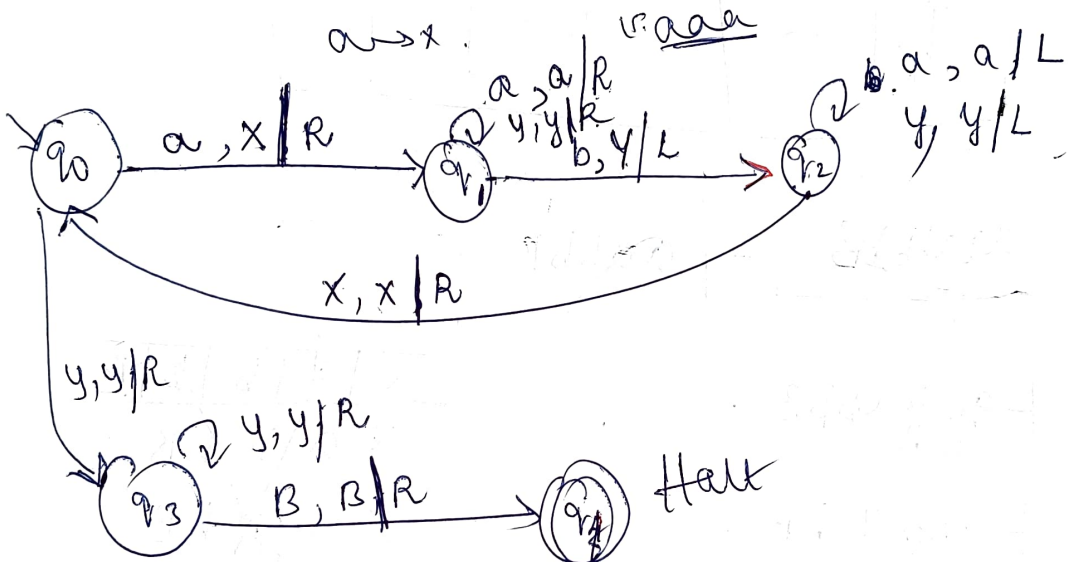 a→x. aaa
q0
a, X | R
a, a/R
y, y/R
q1
b, Y/L
q2
a, a/L
y, y/L
X, x | R
y, y/R
q3
y, y/R
B, B | R
Halt